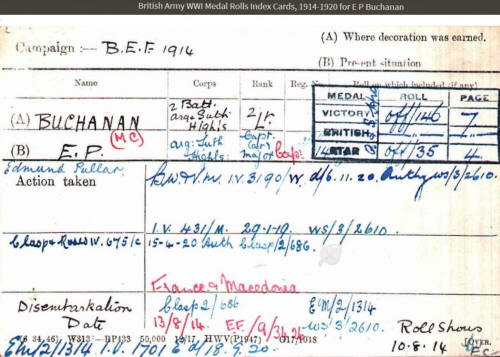 British Army WWI Medal Rolls Index Cards, 1914-1920 for E P Buchanan
Campaign :— B.E.F. 1914
(A) Where decoration was earned.
(B) Present situation
Name Corps Rank Reg. No. Roll on which included (if any)
MEDAL ROLL PAGE
VICTORY off/146 7
BRITISH
STAR off/35 4
(A) BUCHANAN 2 Batt. Arg & Suth Highls 2/Lt.
(MC)
(B) E.P. Arg: Suth Highls: Capt (a/c) Major Capt
Edmund Pullar
Action taken B.W.& V.M. I.V. 3190/W. d/6.11.20. Authy WS/3/2610.
I.V. 431/M. 29-1-19. WS/3/2610.
Clasp & Roses IV. 675/C 15-4-20 Auth Clasp/2/686.
France & Macedonia
Disembarkation Date Clasp 2/686 EM/2/1314
13/8/14 E.F./9/ WS/3/2610. Roll Shows
10.8.14
(6 34, 46) W313—HP133 50,000 12/17 HWV(P1947) G17/1018 [OVER.
EM/2/1314 I.V. 1701 E d/18.9.20.